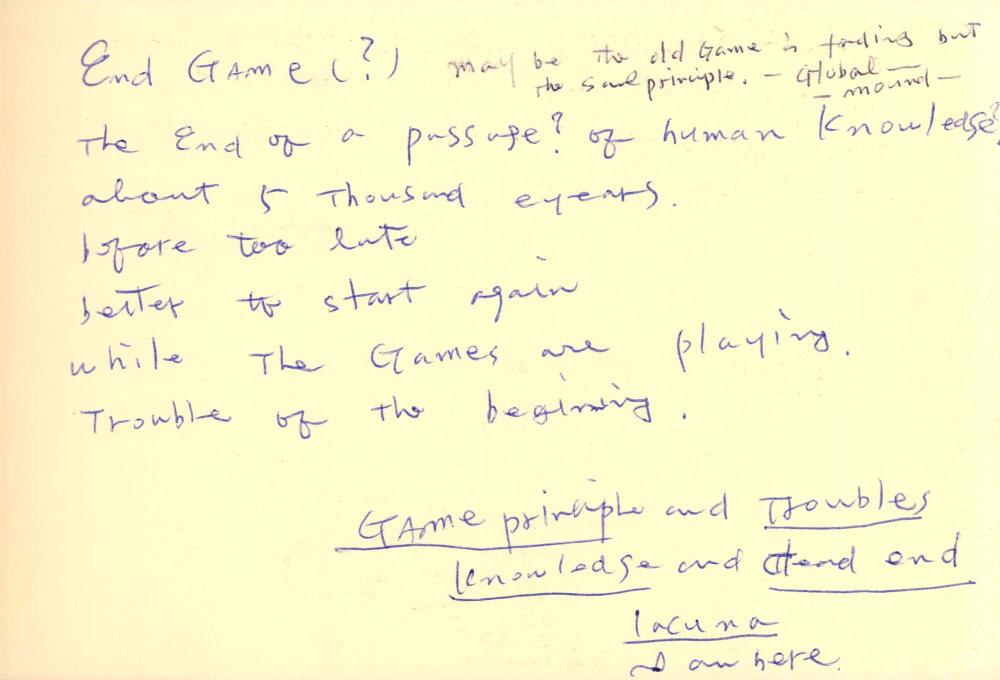 End GAme (?) may be the old Game is fading but
the same principle. – Global –
– mound –
The End of a passage? of human Knowledge?
about 5 Thousand eyears.
before too late
better to start again
while The Games are playing.
Trouble of the begining.
GAme principle and Troubles
Knowledge and dead end
lacuna
I am here.